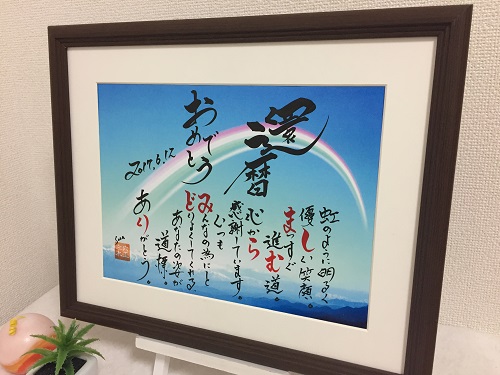 還暦
おめでとう
2017.6.12
虹のように明るく
優しい笑顔。
まっすぐ
進む道。
心から
感謝しています。
いつも
みんなの為にと
どりょくしてくれる
あなたの姿が
道標。
ありがとう。